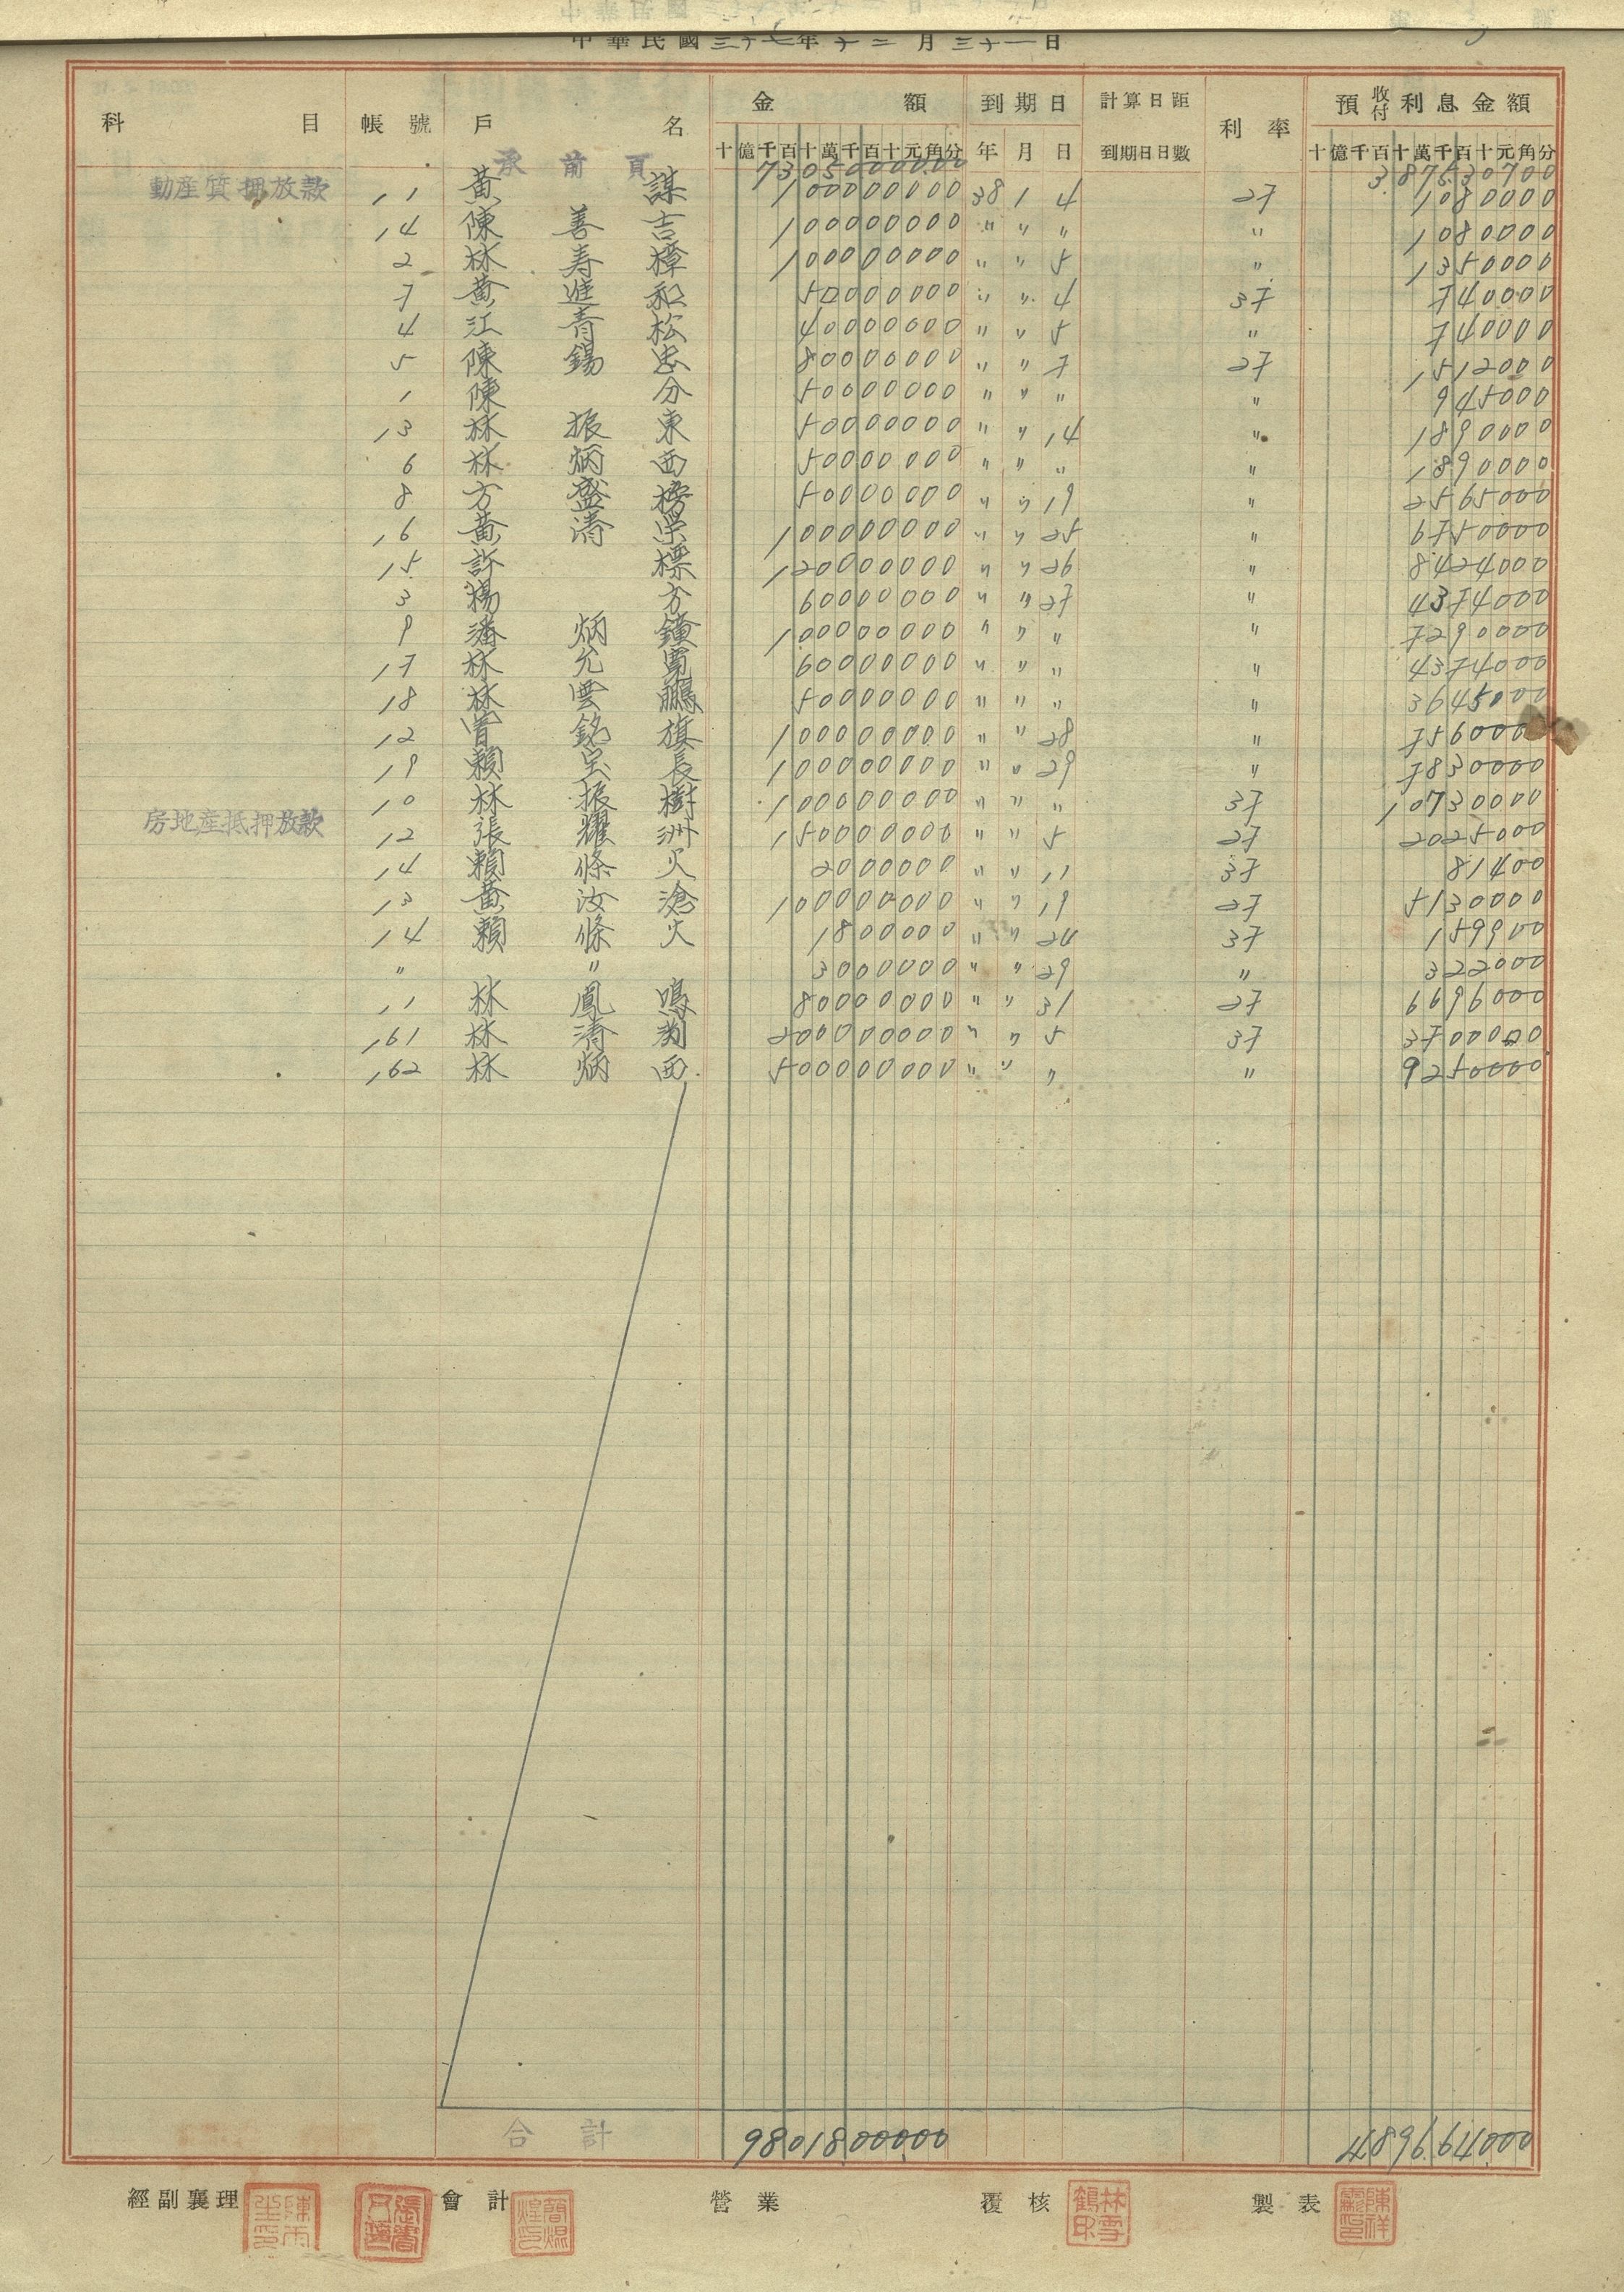 中華民國三十七年十二月三十一日
科目 帳號 戶名 金額 到期日 計算日距到期日日數 利率 預收付利息金額
十億千百十萬千百十元角分 年 月 日 十億千百十萬千百十元角分
承前頁 7305000000 387530700
動產質押放款 11 黃 謀 100000000 38 1 4 27 1080000
14 陳善吉 100000000 〃 〃 〃 〃 1080000
2 林寿樟 100000000 〃 〃 5 〃 1350000
7 黃進和 50000000 〃 〃 4 37 740000
4 江青松 40000000 〃 〃 5 〃 740000
5 陳錫忠 80000000 〃 〃 7 27 1512000
1 陳 分 50000000 〃 〃 〃 〃 945000
13 林振東 50000000 〃 〃 14 〃 1890000
6 林炳西 50000000 〃 〃 〃 〃 1890000
8 方盛榜 50000000 〃 〃 19 〃 2565000
16 黃清 100000000 〃 〃 25 〃 6750000
15 許 標 120000000 〃 〃 26 〃 8424000
3 楊 方 60000000 〃 〃 27 〃 4374000
9 潘炳鐘 100000000 〃 〃 〃 〃 7290000
17 林允寬 60000000 〃 〃 〃 〃 4374000
18 林雲鵬 50000000 〃 〃 〃 〃 3645000
12 曾銘旗 100000000 〃 〃 28 〃 7560000
19 賴宝長 100000000 〃 〃 29 〃 7830000
10 林振樹 100000000 〃 〃 〃 37 10730000
房地產抵押放款 12 張耀洲 150000000 〃 〃 5 27 2025000
14 賴條火 2000000 〃 〃 11 37 81400
13 黃汝滄 100000000 〃 〃 19 27 5130000
14 賴條火 1800000 〃 〃 24 37 159900
〃 〃 3000000 〃 〃 29 〃 322000
11 林鳳鳴 80000000 〃 〃 31 27 6696000
161 林清 200000000 〃 〃 5 37 3700000
162 林炳西 500000000 〃 〃 〃 〃 9250000
合計 9801800000 489664000
經副襄理 會計 營業 覆核 製表